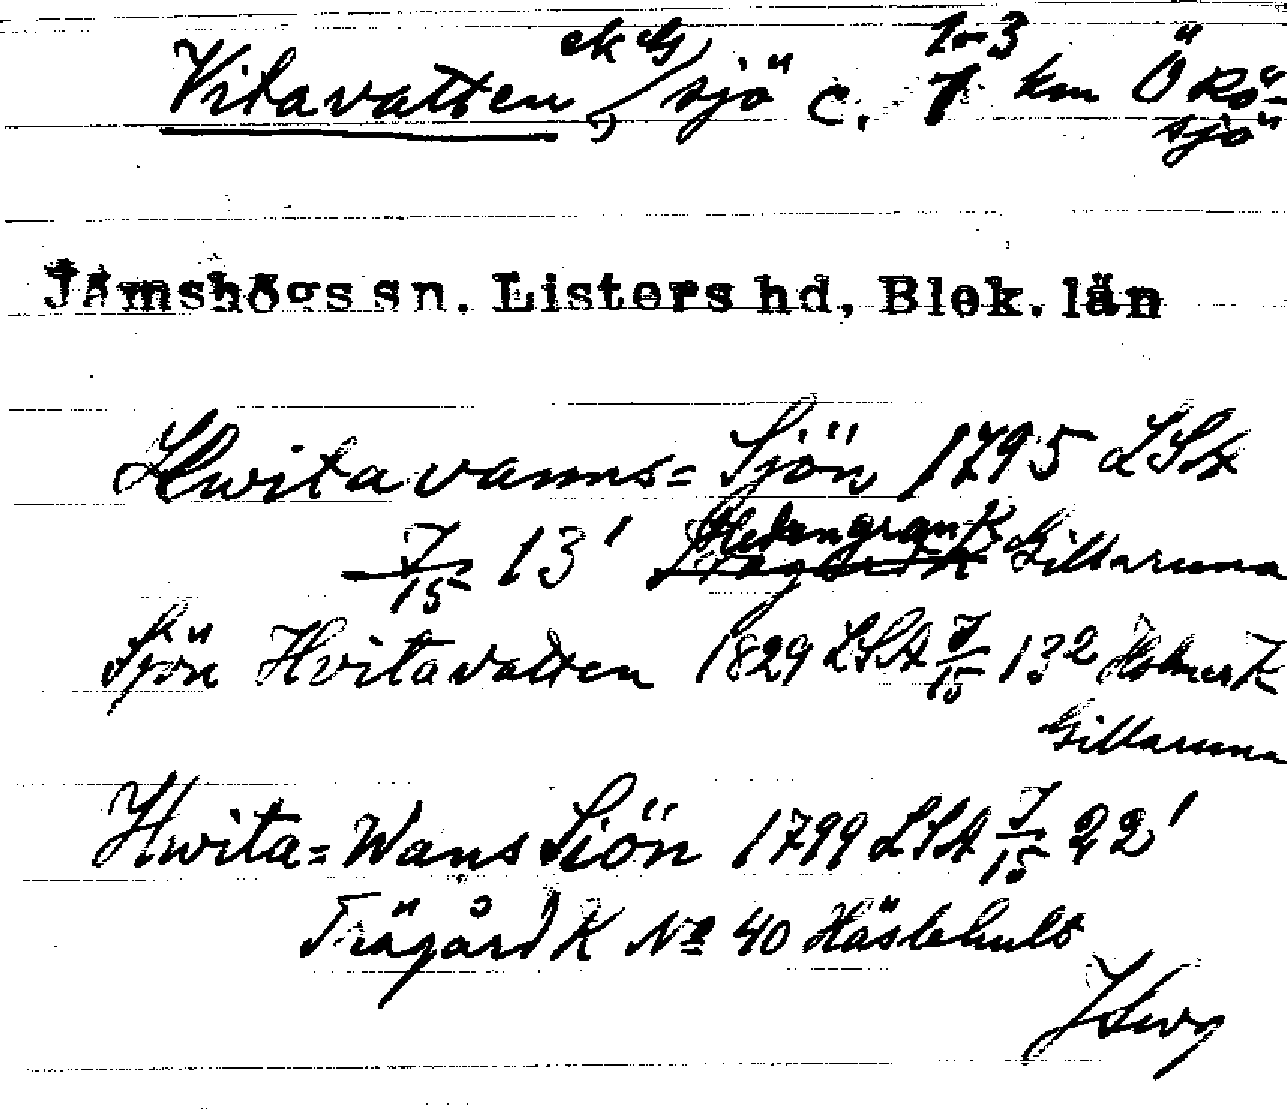 ek G 1-3
Vitavatten, sjö c. 1 km Ö Rö-
sjö
Jämshögs sn. Listers hd, Blek. län
Hwitavanns= Sjön 1795 LSA
J/15 13¹ Hedengran K Gillaruna
Sjön Hvitavatten 1829 LSA J/15 13² Holmer K
Gillaruna
Hwita=Wans Siön 1799 LSA J/15 22¹
Trägård K No 40 Hästehult